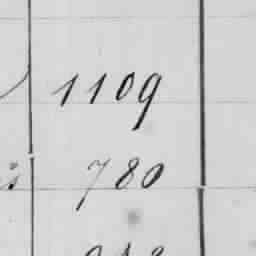 1109
780